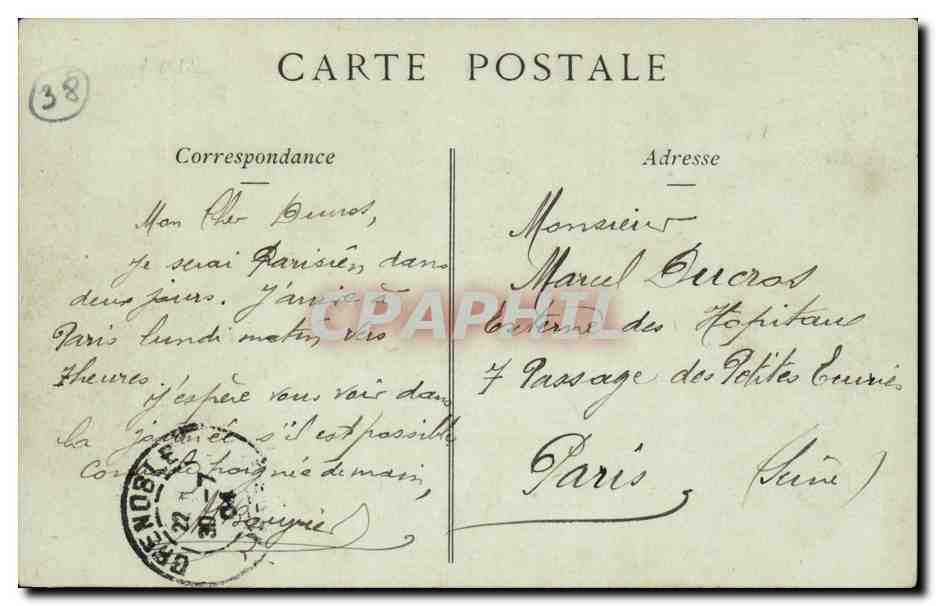 38
CARTE POSTALE
Correspondance
Mon Cher Ducros,
Je serai Parisien dans
deux jours. J'arrive à
Paris lundi matin vers
7 heures.
J'espère vous voir dans
la journée s'il est possible
poignée de main,
Adresse
Monsieur
Marcel Ducros
Externe des Hopitaux
7 Passage des Petites Ecuries
Paris
(Seine)
GRENOBLE
22
30-7
CPAPHIL